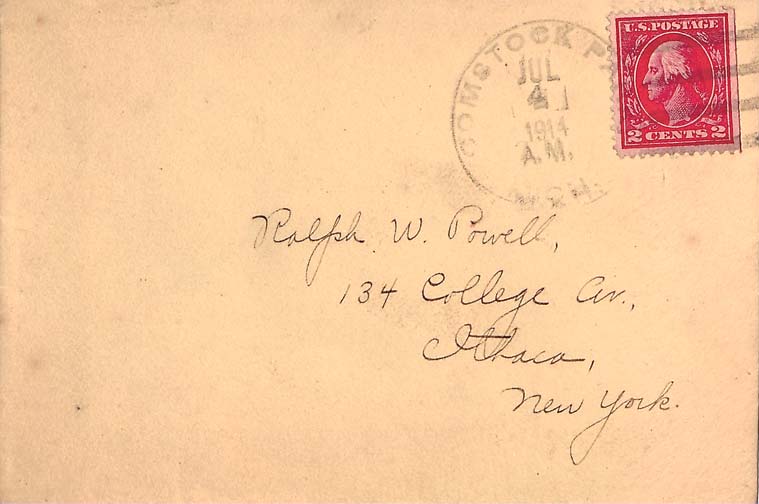 COMSTOCK P
JUL
4
1914
A.M.
U.S. POSTAGE
2 CENTS 2
Ralph W. Powell,
134 College Av.,
Ithaca,
New York.